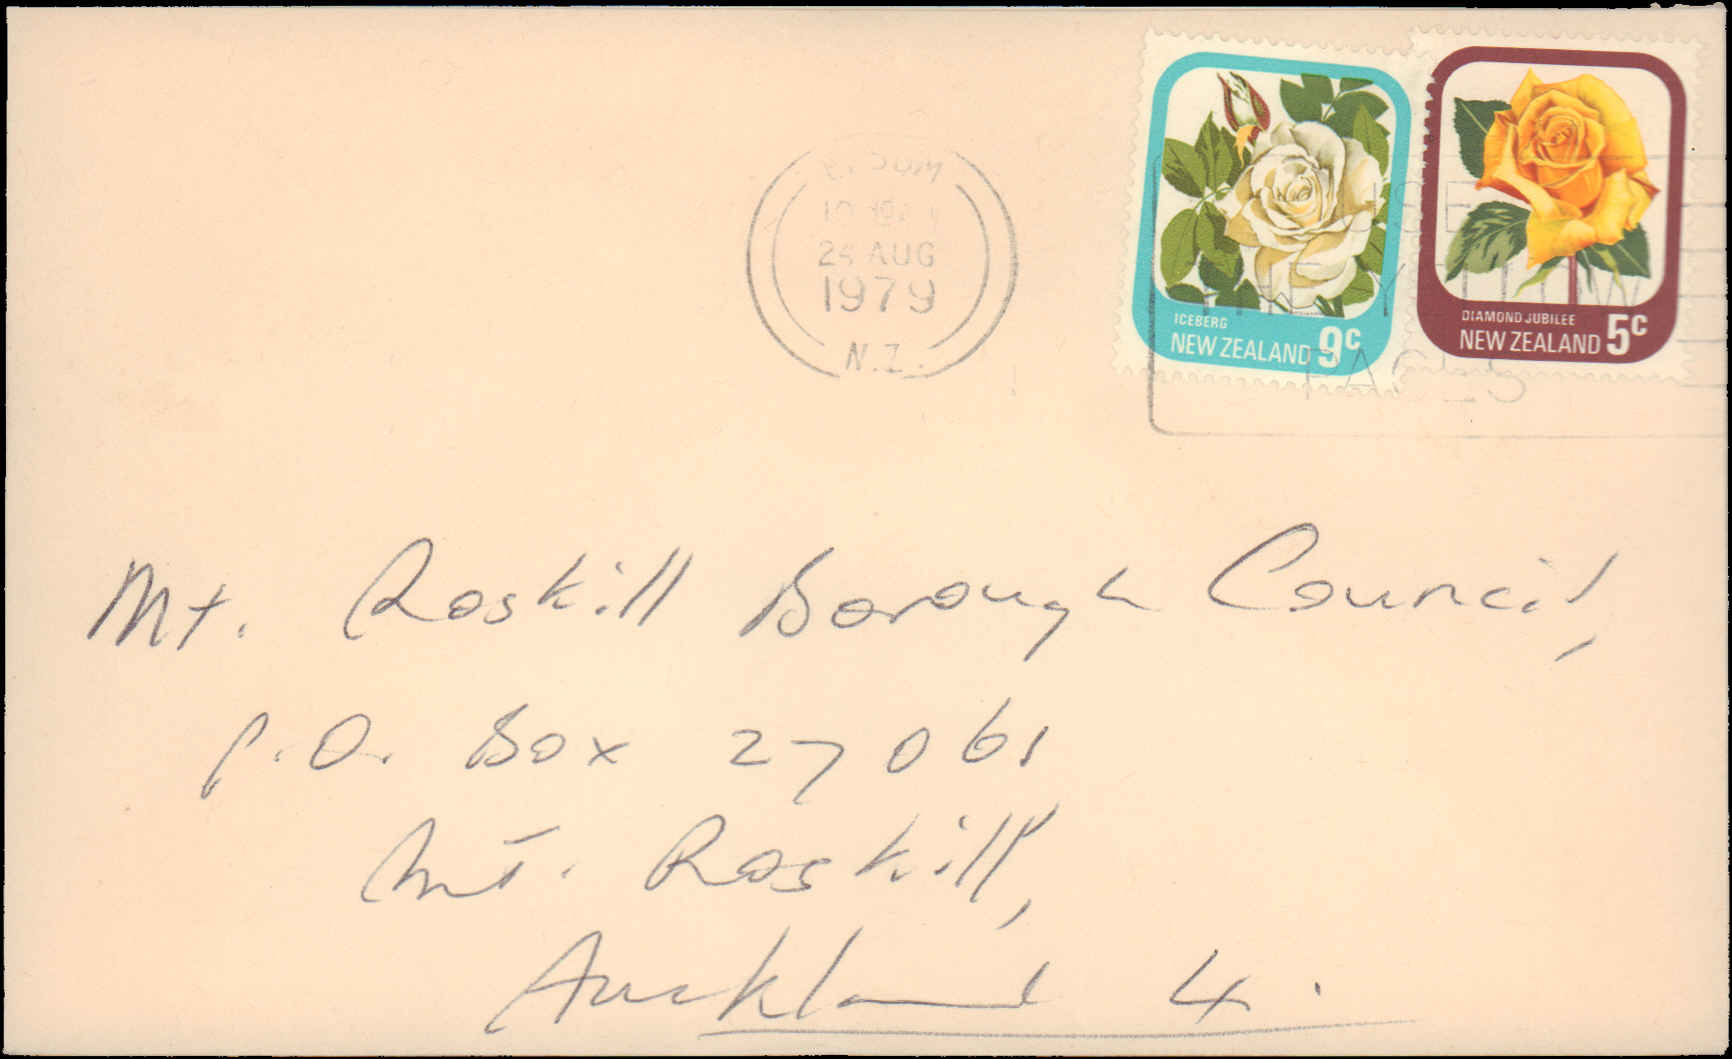 AUG
1979
N.Z.
USE
THE YELLOW
PAGES
ICEBERG
NEW ZEALAND 9c
DIAMOND JUBILEE
NEW ZEALAND 5c
Mt. Roskill Borough Council,
P.O. Box 27061
Mt. Roskill,
Auckland 4.